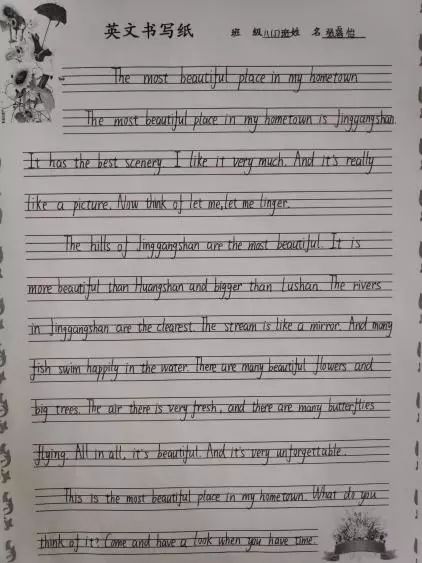 英文书写纸 班 级 八(1)班 姓 名
The most beautiful place in my hometown
The most beautiful place in my hometown is Jinggangshan.
It has the best scenery. I like it very much. And it's really
like a picture. Now think of let me, let me linger.
The hills of Jinggangshan are the most beautiful. It is
more beautiful than Huangshan and bigger than Lushan. The rivers
in Jinggangshan are the clearest. The stream is like a mirror. And many
fish swim happily in the water. There are many beautiful flowers and
big trees. The air there is very fresh, and there are many butterflies
flying. All in all, it's beautiful. And it's very unforgettable.
This is the most beautiful place in my hometown. What do you
think of it? Come and have a look when you have time.